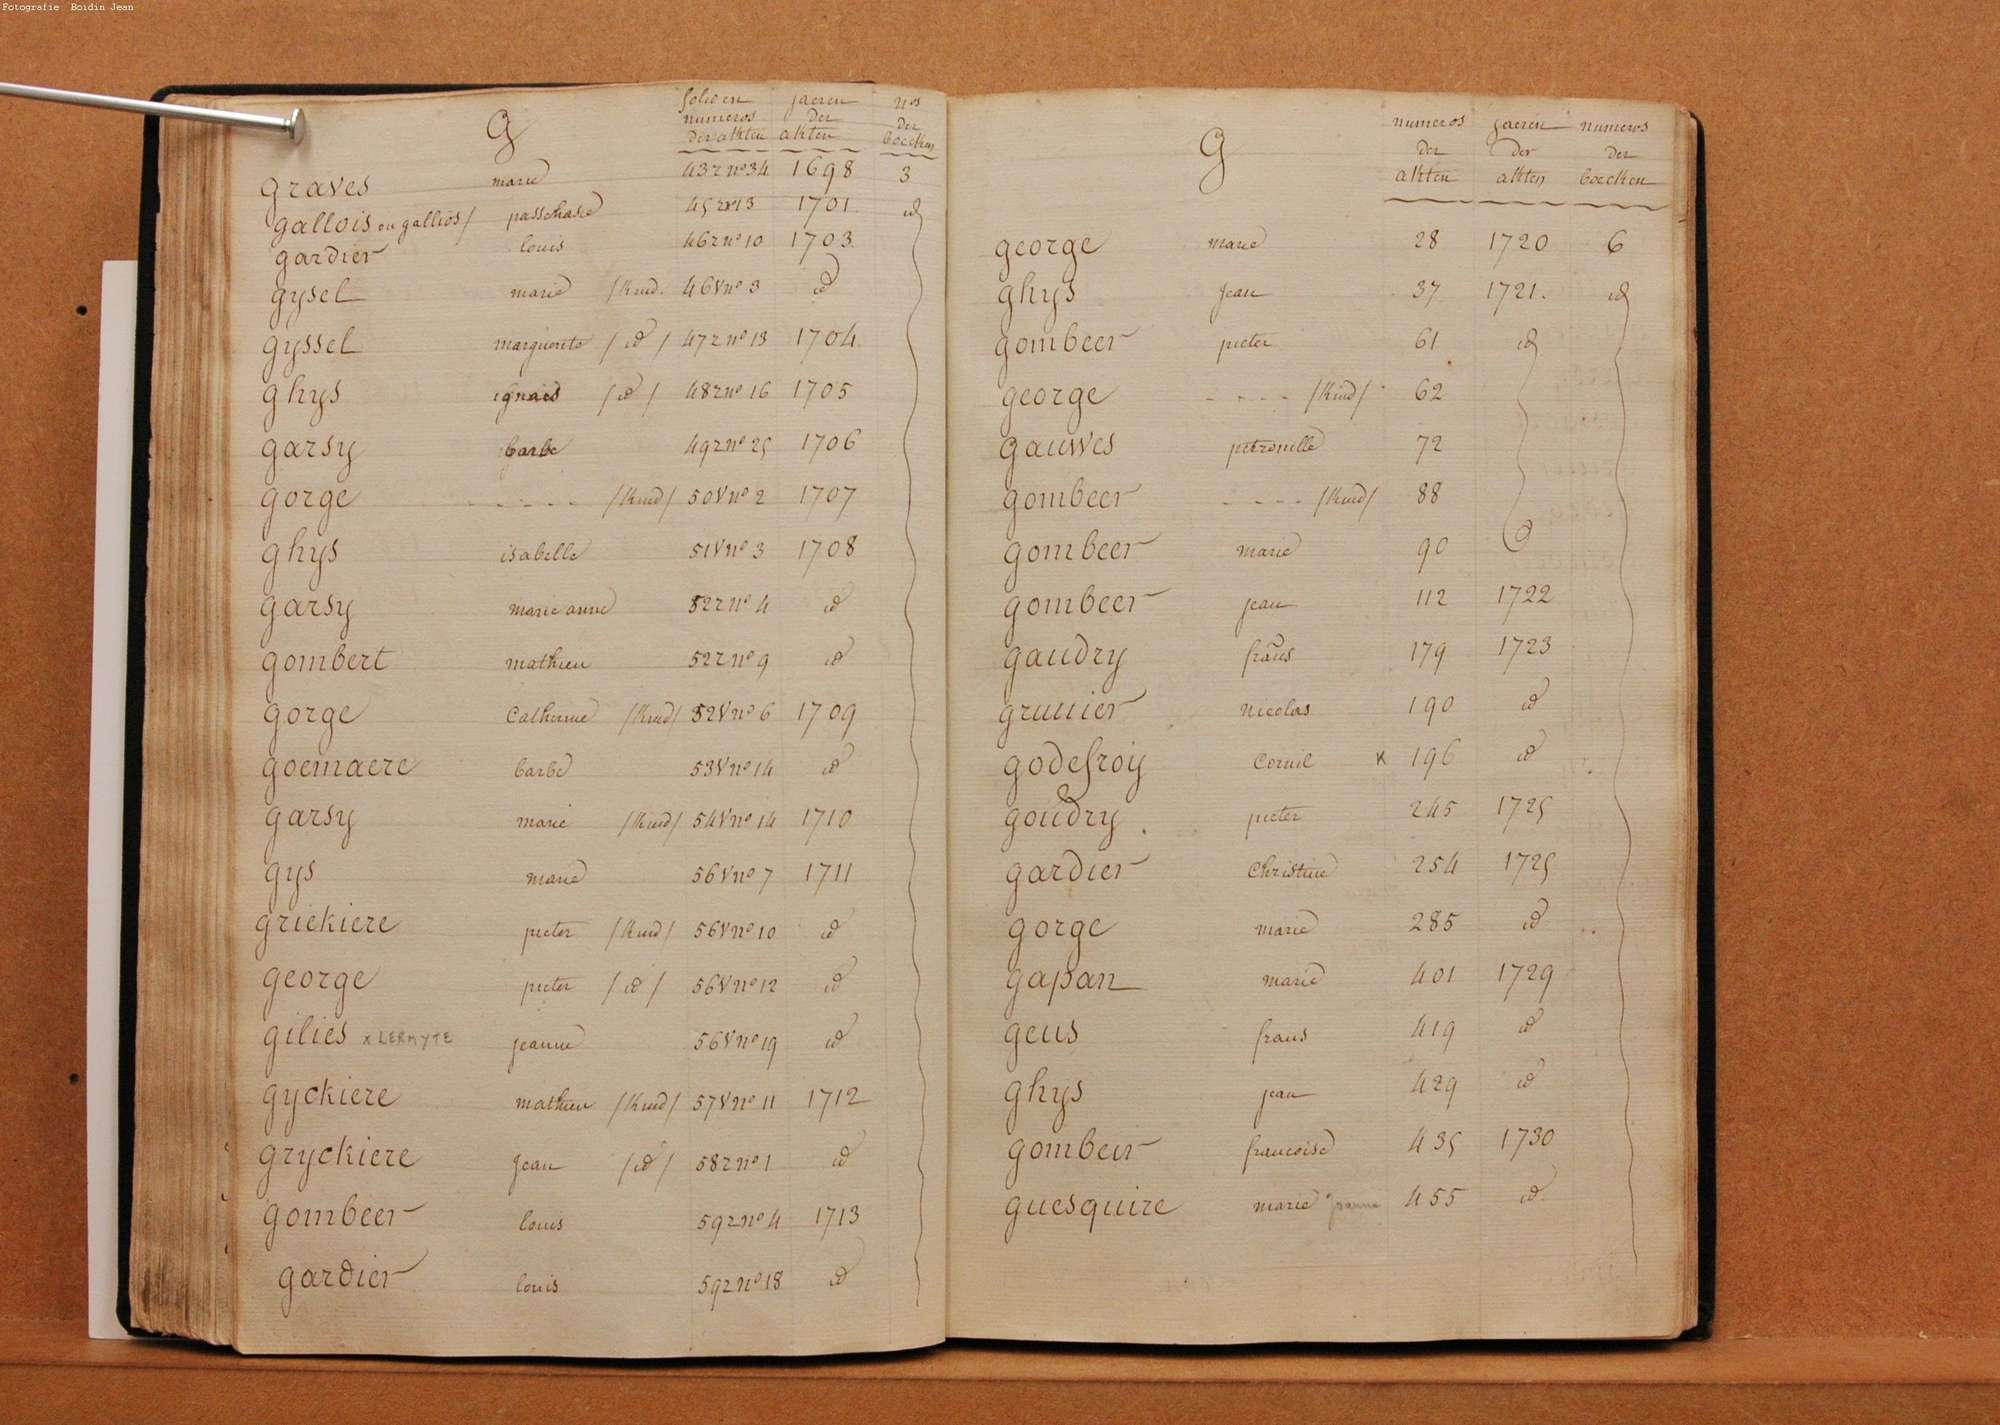 Fotografie Boidin Jean
G
folio en numeros der akten
jaeren der akten
nos der boecken
graves marie 43 r no 34 1698 3
gallois ou gallios / passchasie 45 r 13 1701 id
gardier louis 46 r no 10 1703
gysel marie / kind. 46 V no 3 id
gyssel marguerite / id / 47 r no 13 1704
ghys ignaes / id / 48 r no 16 1705
garsy barbe 49 r no 25 1706
gorge - - - - - / kind / 50 V no 2 1707
ghys isabelle 51 V no 3 1708
garsy marie anne 52 r no 4 id
gombert mathieu 52 r no 9 id
gorge Catherine / kind / 52 V no 6 1709
goemaere barbe 53 V no 14 id
garsy marie / kind / 54 V no 14 1710
gys marie 56 V no 7 1711
griekiere pieter / kind / 56 V no 10 id
george pieter / id / 56 V no 12 id
gilies x LERMYTE jeanne 56 V no 19 id
gyckiere mathieu / kind / 57 V no 11 1712
gryckiere Jean / id / 58 r no 1 id
gombeer louis 59 r no 4 1713
gardier louis 59 r no 18 id
G
numeros der akten
jaeren der akten
numeros der boecken
george marie 28 1720 6
ghys Jean 37 1721. id
gombeer pieter 61 id
george - - - - / kind / 62
gauwes petronille 72
gombeer - - - - / kind / 88
gombeer marie 90
gombeer jean 112 1722
gaudry frans 179 1723
grunier nicolas 190 id
godefroy Cornil x 196 id
goudry pieter 245 1725
gardier Christine 254 1725
gorge marie 285 id
gapan marie 401 1729
geus frans 419 id
ghys jean 429 id
gombeir francoise 435 1730
guesquire marie Joanna 455 id